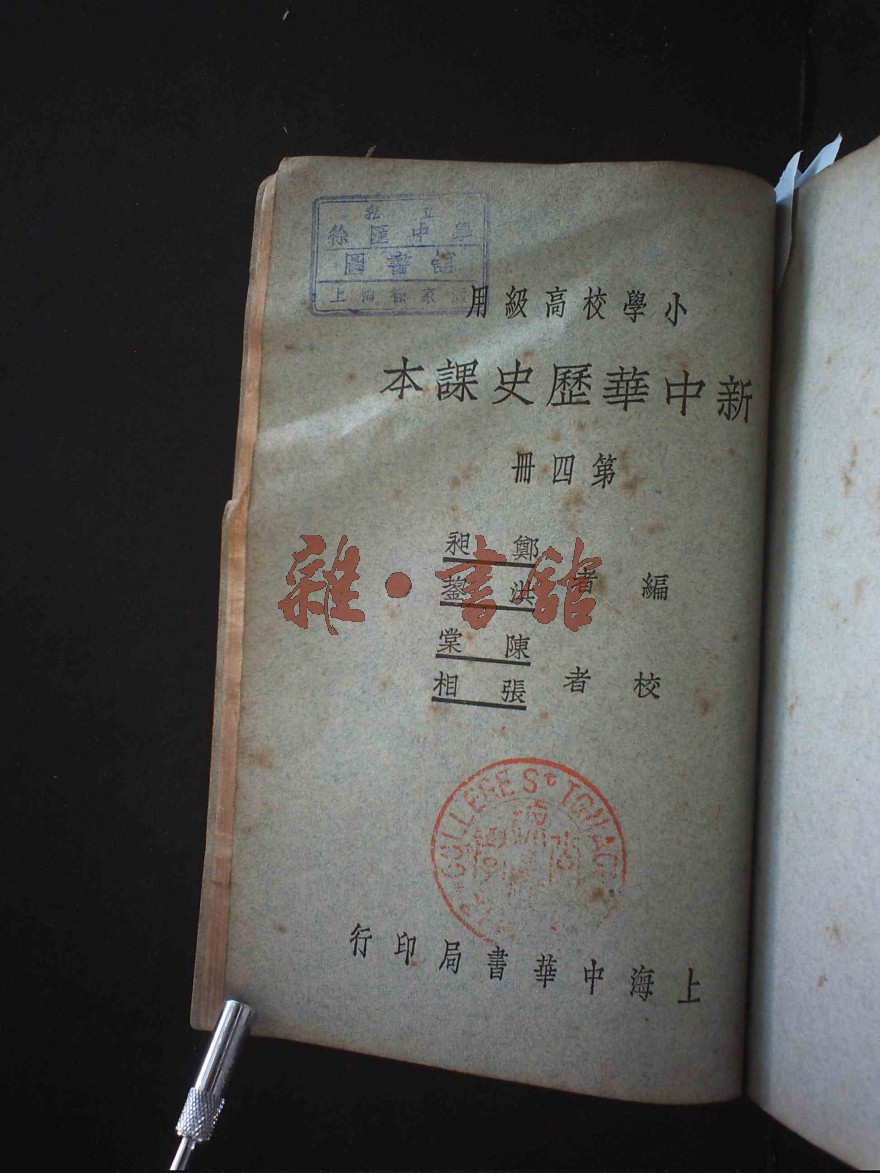 私立
徐匯中學
圖書館
上海徐家匯
小學校高級用
新中華歷史課本
第四冊
編者
鄭昶
洪鋆
校者
陳棠
張相
雜·書館
COLLEGE St IGNACE
上海中華書局印行